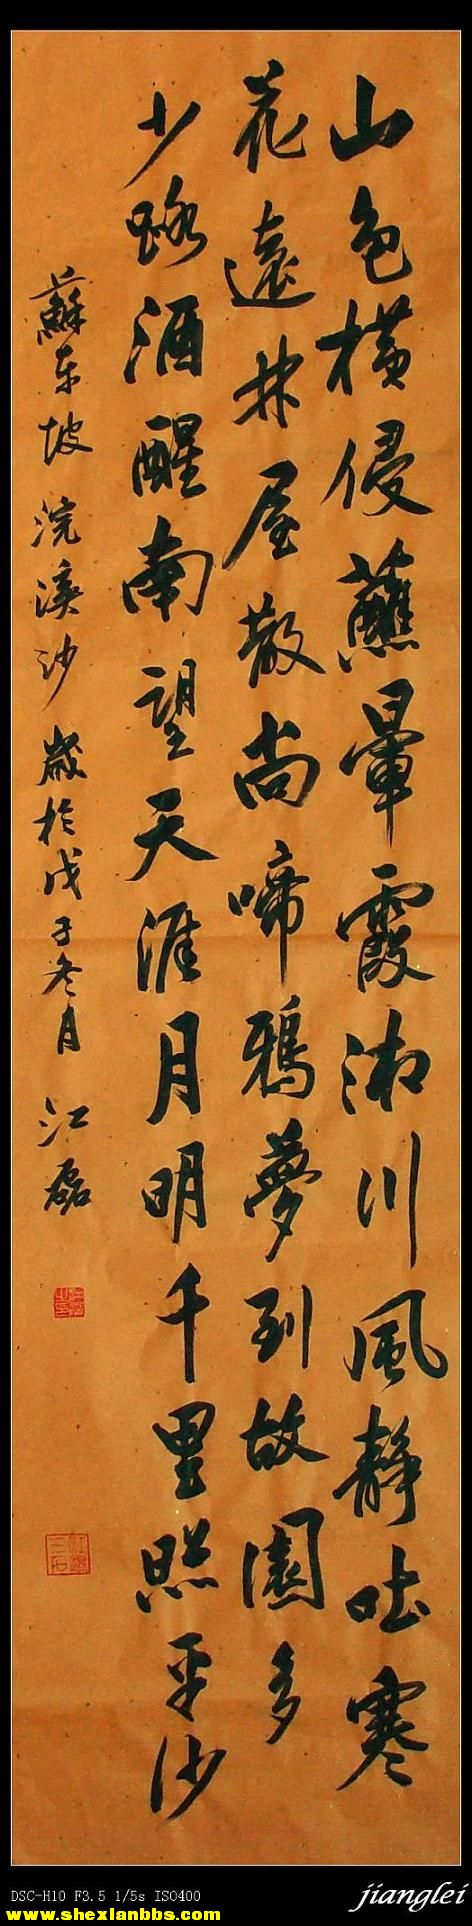 山色橫侵蘸暈霞湘川風靜吐寒
花遠林屋散尚啼鴉夢到故園多
少路酒醒南望天涯月明千里照平沙
蘇东坡 浣溪沙 歲於戊子冬月 江磊
DSC-H10 F3.5 1/5s ISO400
www.shexianbbs.com
jianglei